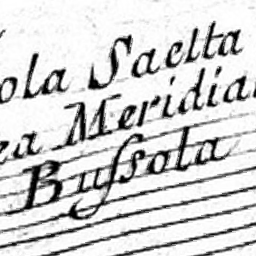 ola Saetta
ea Meridia
Bufsola